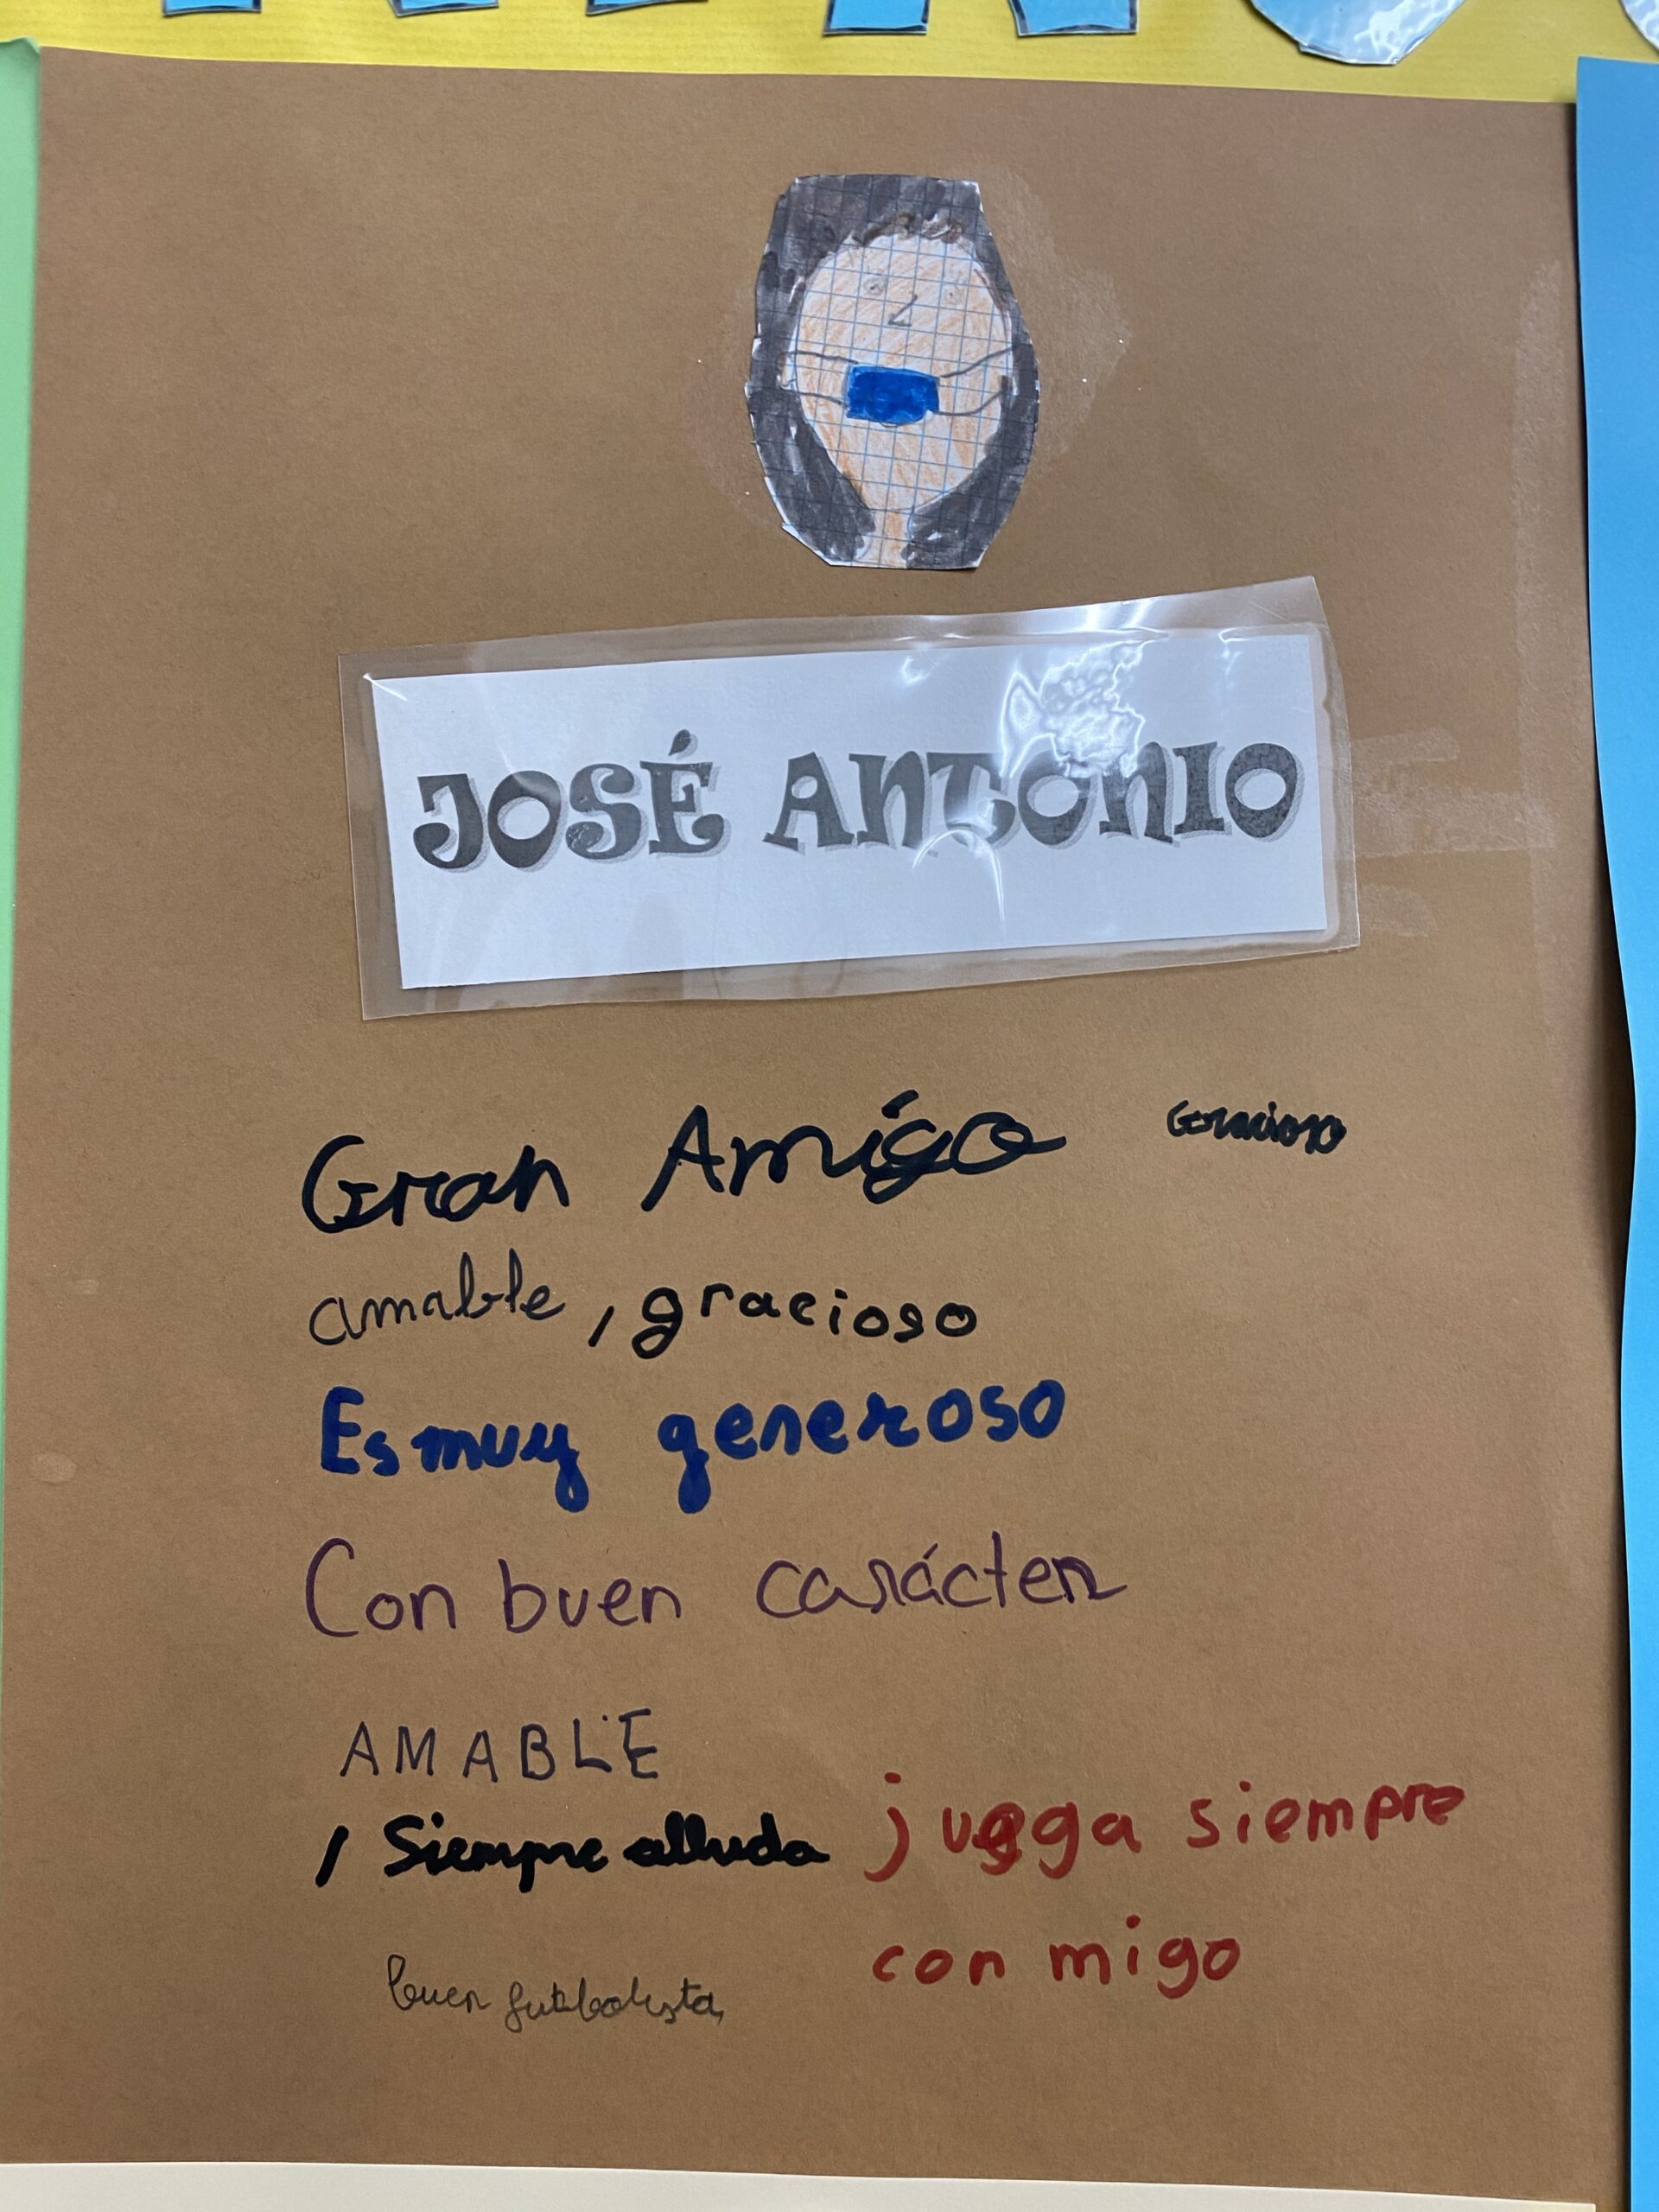 JOSÉ ANTONIO
Gran Amigo
Gracioso
amable, gracioso
Es muy generoso
Con buen carácter
AMABLE
, Siempre alluda
juega siempre
con migo
buen futbolista